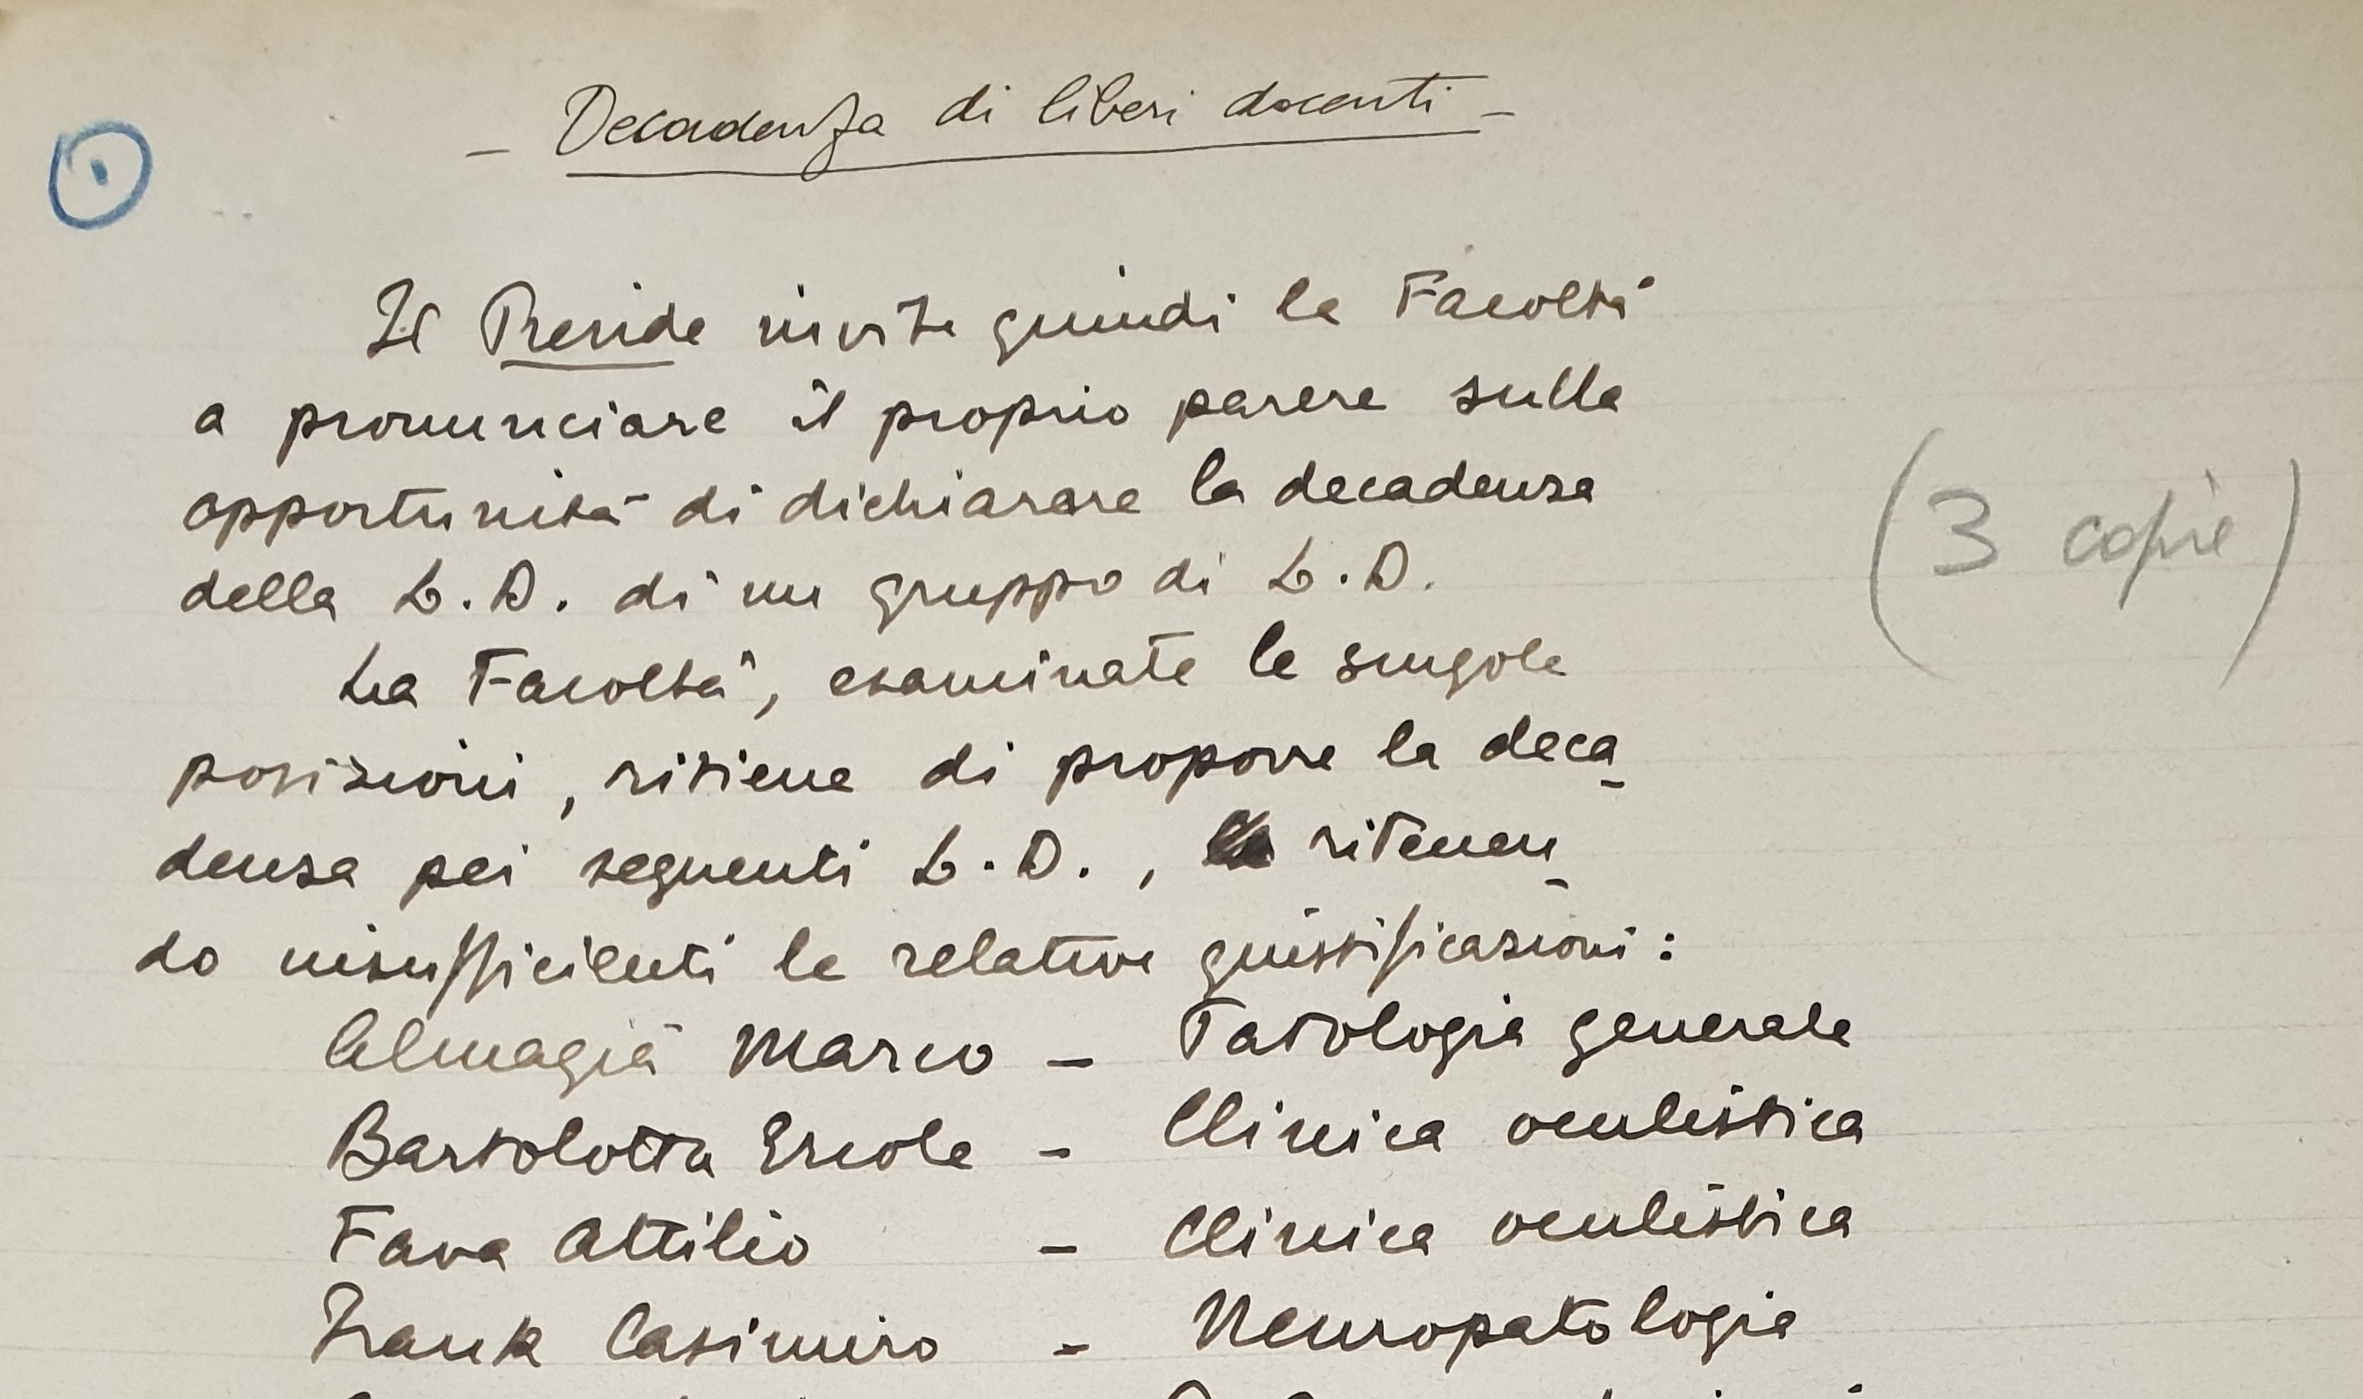 - Decadenza di liberi docenti -
Il Preside invita quindi la Facoltà
a pronunciare il proprio parere sulla
opportunità di dichiarare la decadenza
(3 copie)
della L.D. di un gruppo di L.D.
La Facoltà, esaminate le singole
posizioni, ritiene di proporre la deca
denza pei seguenti L.D., ritenen
do insufficienti le relative giustificazioni:
Almagià Marco - Patologia generale
Bartolotta Ercole - Clinica oculistica
Fava Attilio - Clinica oculistica
Frank Casimiro - Neuropatologia